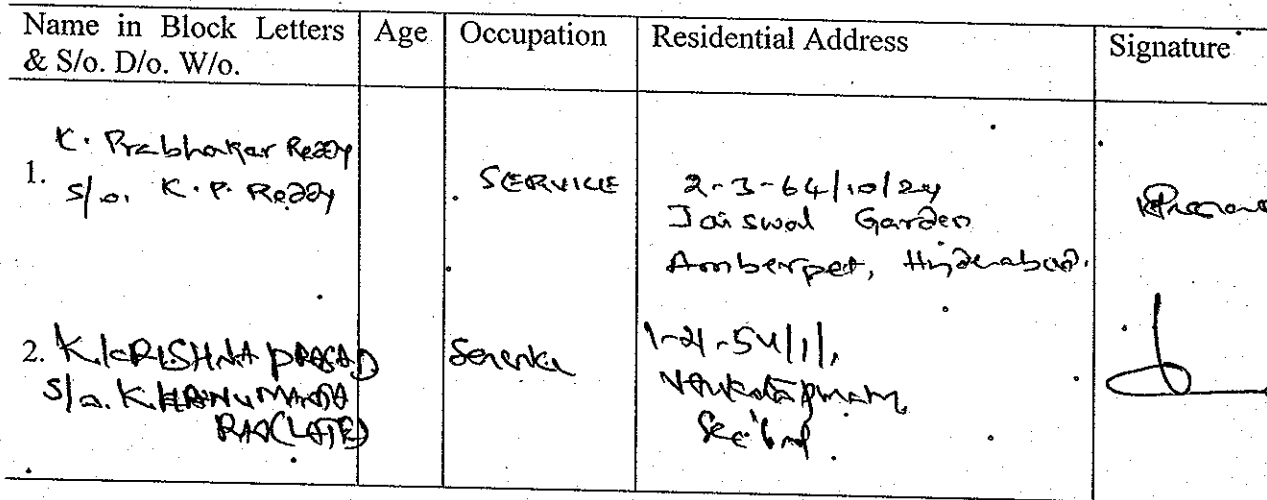 Name in Block Letters & S/o. D/o. W/o. Age Occupation Residential Address Signature
1. K. Prabhakar Reddy
S/o. K. P. Reddy
SERVICE
2-3-64/10/24
Jaiswal Garden
Amberpet, Hyderabad.
2. K. KRISHNA PRASAD
S/o. K. HANUMANTA
RAO (LATE)
Service
1-21-54/1/,
Venkatapuram,
Sec'bad.